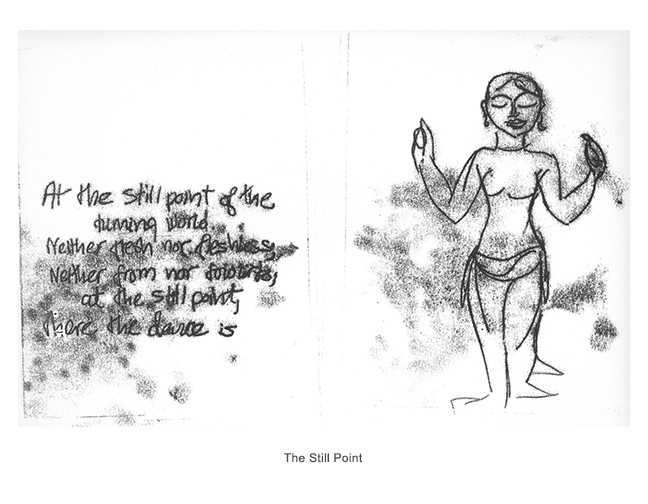 At the still point of the
turning world
Neither flesh nor fleshless,
Neither from nor towards,
at the still point,
there the dance is
The Still Point